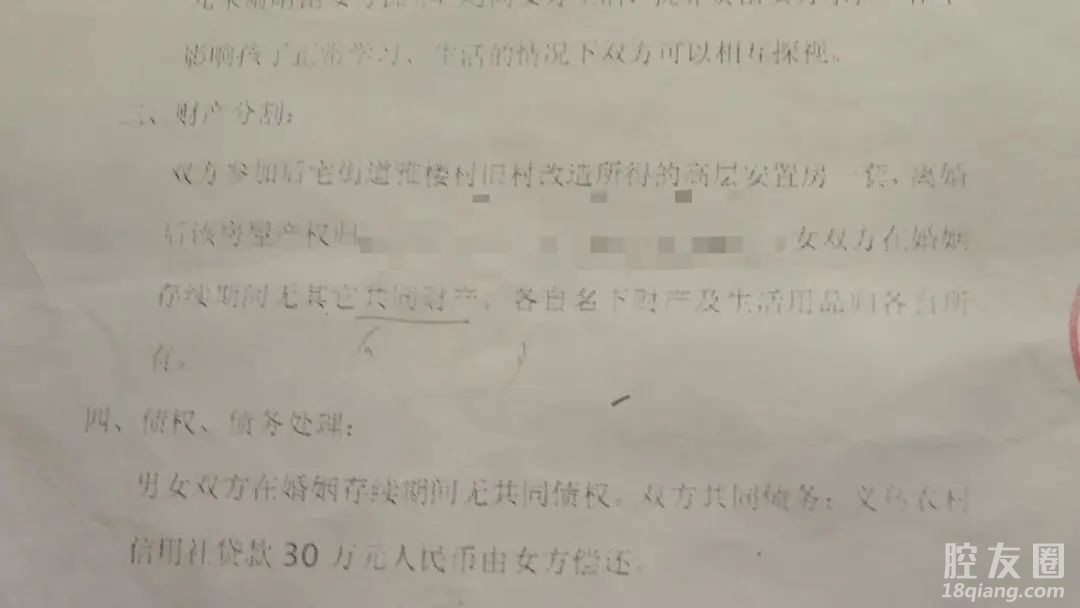 影响孩子正常学习、生活的情况下双方可以相互探视。
三、财产分割：
双方参加后宅街道雅楼村旧村改造所得的高层安置房一套、离婚
后该房屋产权归 女双方在婚姻
存续期间无其它共同财产，各自名下财产及生活用品归各自所
有。
四、债权、债务处理：
男女双方在婚姻存续期间无共同债权。双方共同债务：义乌农村
信用社贷款 30 万元人民币由女方偿还。
腔友圈
18qiang.com